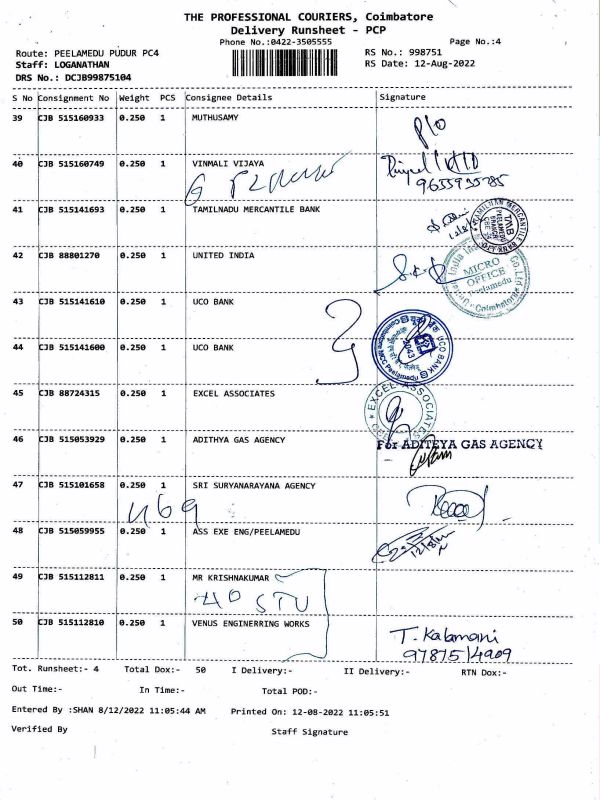 THE PROFESSIONAL COURIERS, Coimbatore
Delivery Runsheet - PCP
Phone No.:0422-3505555 Page No.:4
Route: PEELAMEDU PUDUR PC4 RS No.: 998751
Staff: LOGANATHAN RS Date: 12-Aug-2022
DRS No.: DCJB99875104
S No Consignment No Weight PCS Consignee Details Signature
39 CJB 515160933 0.250 1 MUTHUSAMY
40 CJB 515160749 0.250 1 VINMALI VIJAYA
41 CJB 515141693 0.250 1 TAMILNADU MERCANTILE BANK
42 CJB 88801270 0.250 1 UNITED INDIA
MICRO
OFFICE
Peelamedu
Coimbatore
43 CJB 515141610 0.250 1 UCO BANK
44 CJB 515141600 0.250 1 UCO BANK
UCO BANK
45 CJB 88724315 0.250 1 EXCEL ASSOCIATES
EXCEL ASSOCIATES
46 CJB 515053929 0.250 1 ADITHYA GAS AGENCY
For ADITEYA GAS AGENCY
47 CJB 515101658 0.250 1 SRI SURYANARAYANA AGENCY
469
48 CJB 515059955 0.250 1 ASS EXE ENG/PEELAMEDU
49 CJB 515112811 0.250 1 MR KRISHNAKUMAR
50 CJB 515112810 0.250 1 VENUS ENGINERRING WORKS
T. Kalamani
9787514909
Tot. Runsheet:- 4 Total Dox:- 50 I Delivery:- II Delivery:- RTN Dox:-
Out Time:- In Time:- Total POD:-
Entered By :SHAN 8/12/2022 11:05:44 AM Printed On: 12-08-2022 11:05:51
Verified By Staff Signature